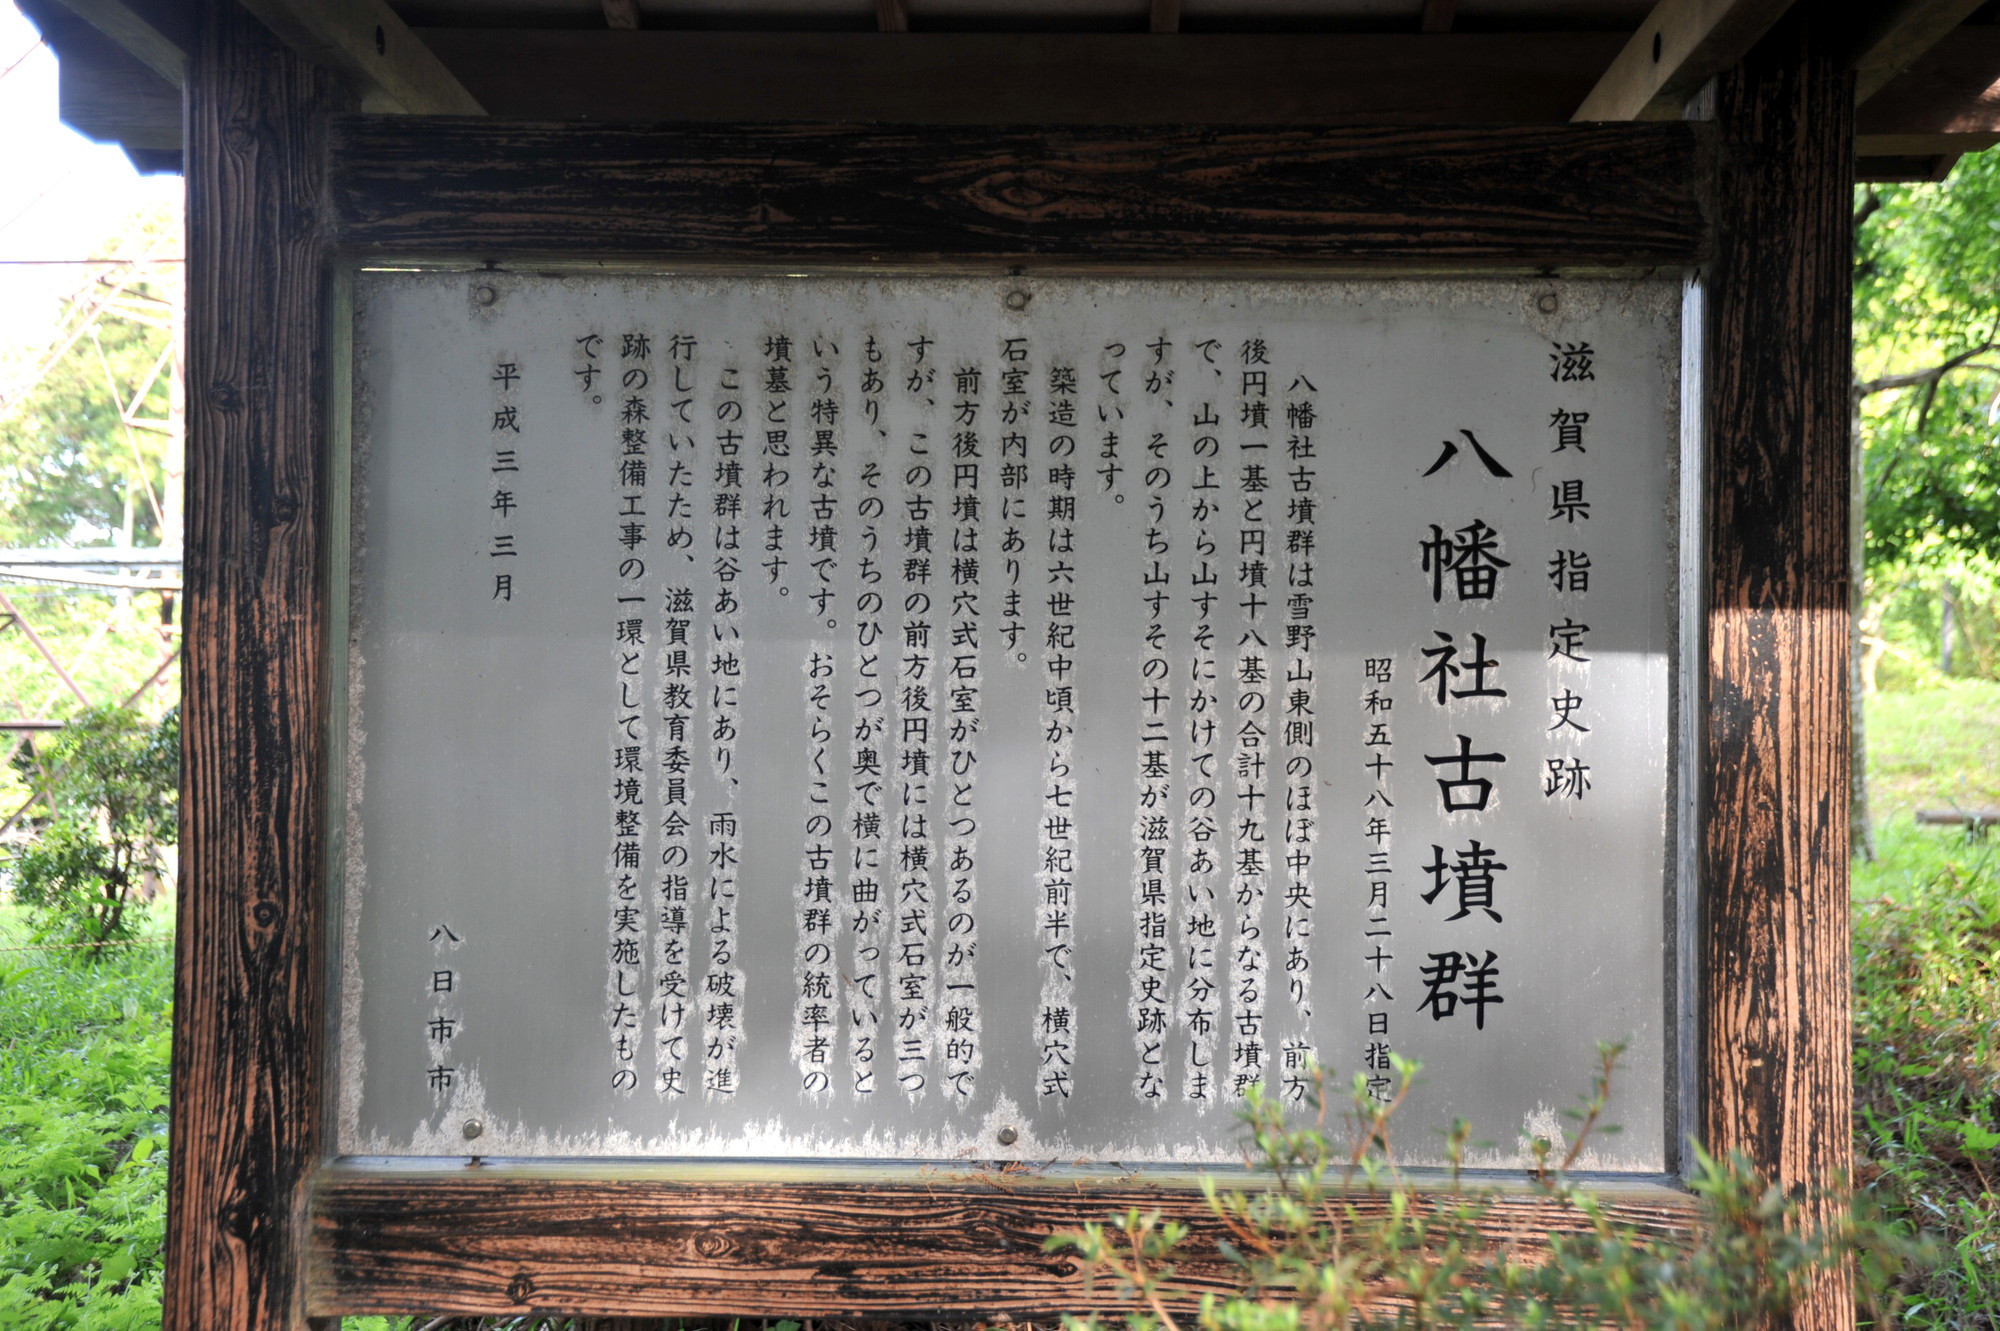 滋賀県指定史跡
八幡社古墳群
昭和五十八年三月二十八日指定
八幡社古墳群は雪野山東側のほぼ中央にあり、前方
後円墳一基と円墳十八基の合計十九基からなる古墳群
で、山の上から山すそにかけての谷あい地に分布しま
すが、そのうち山すその十二基が滋賀県指定史跡とな
っています。
築造の時期は六世紀中頃から七世紀前半で、横穴式
石室が内部にあります。
前方後円墳は横穴式石室がひとつあるのが一般的で
すが、この古墳群の前方後円墳には横穴式石室が三つ
もあり、そのうちのひとつが奥で横に曲がっていると
いう特異な古墳です。おそらくこの古墳群の統率者の
墳墓と思われます。
この古墳群は谷あい地にあり、雨水による破壊が進
行していたため、滋賀県教育委員会の指導を受けて史
跡の森整備工事の一環として環境整備を実施したもの
です。
平成三年三月
八日市市